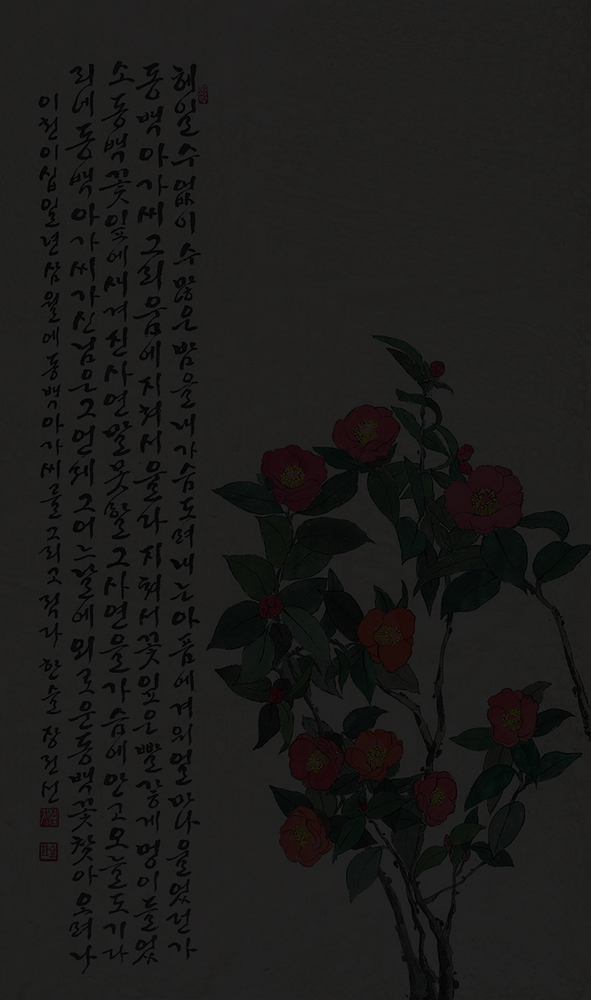 헤일수없이수많은밤을내가슴도려내는아픔에겨워얼마나울었던가
동백아가씨그리움에지쳐서울다지쳐서꽃잎은빨갛게멍이들었
소동백꽃잎에새겨진사연말못할그사연을가슴에안고오늘도기다
리네동백아가씨가신님은그언제그어느날에외로운동백꽃찾아오려나
이천이십일년삼월에동백아가씨를그리고적다 한솔 장전선